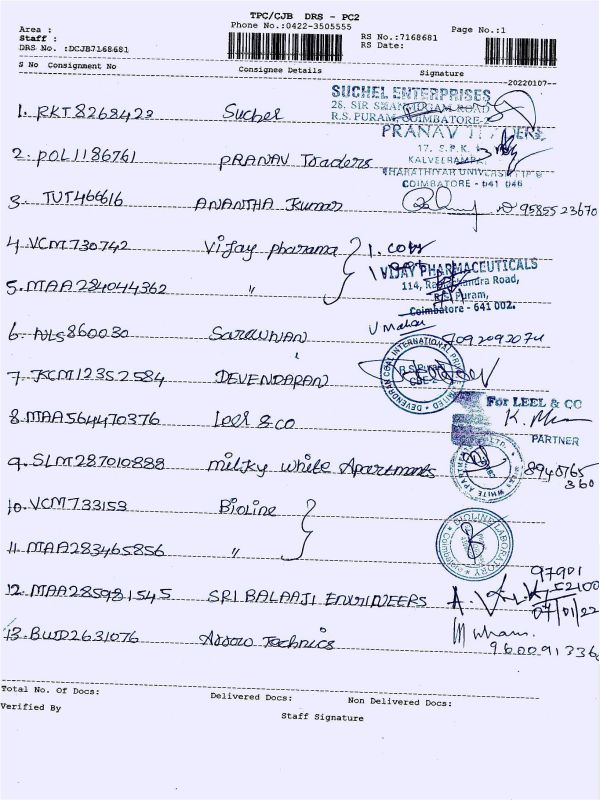 TPC/CJB DRS - PC2
Area : Phone No.:0422-3505555 Page No.:1
Staff : RS No.:7168681
DRS No. :DCJB7168681 RS Date:
S No Consignment No Consignee Details Signature
20220107
SUCHEL ENTERPRISES
28, SIR SHANMUGAM ROAD
R.S. PURAM, COIMBATORE-2
1. RKT8268422 Suchel
PRANAV TRADERS
17, S.P.K.
KALVEERAMPA
BHARATHIYAR UNIVERSITY
COIMBATORE - 641 046
2. POL1186761 PRANAV Traders
3. TUT466616 ANANTHA Kumar 9585523670
4. VCM730742 Vijay pharama 1. COPY
VIJAY PHARMACEUTICALS
114, Ramachandra Road,
R.S. Puram,
Coimbatore - 641 002.
5. MAA284044362 "
6. NLS860030 SARAVANAN 7092092074
DEVENDRAN COAL INTERNATIONAL PRIVATE LIMITED
R.S. Puram
CBE-2
7. JSCM12352584 DEVENDARAN
For LEEL & CO
PARTNER
8. MAA564470376 Leel & co
9. SLM287010888 milky white Apartments 8940765
360
10. VCM733153 Bioline
BIOLINE LABORATORY
11. MAA283465856 "
97901
52100
12. MAA285981545 SRI BALAAJI ENGINEERS
07/01/22
13. BWD2631076 Arrow Technics
960091336
Total No. Of Docs: Delivered Docs: Non Delivered Docs:
Verified By Staff Signature